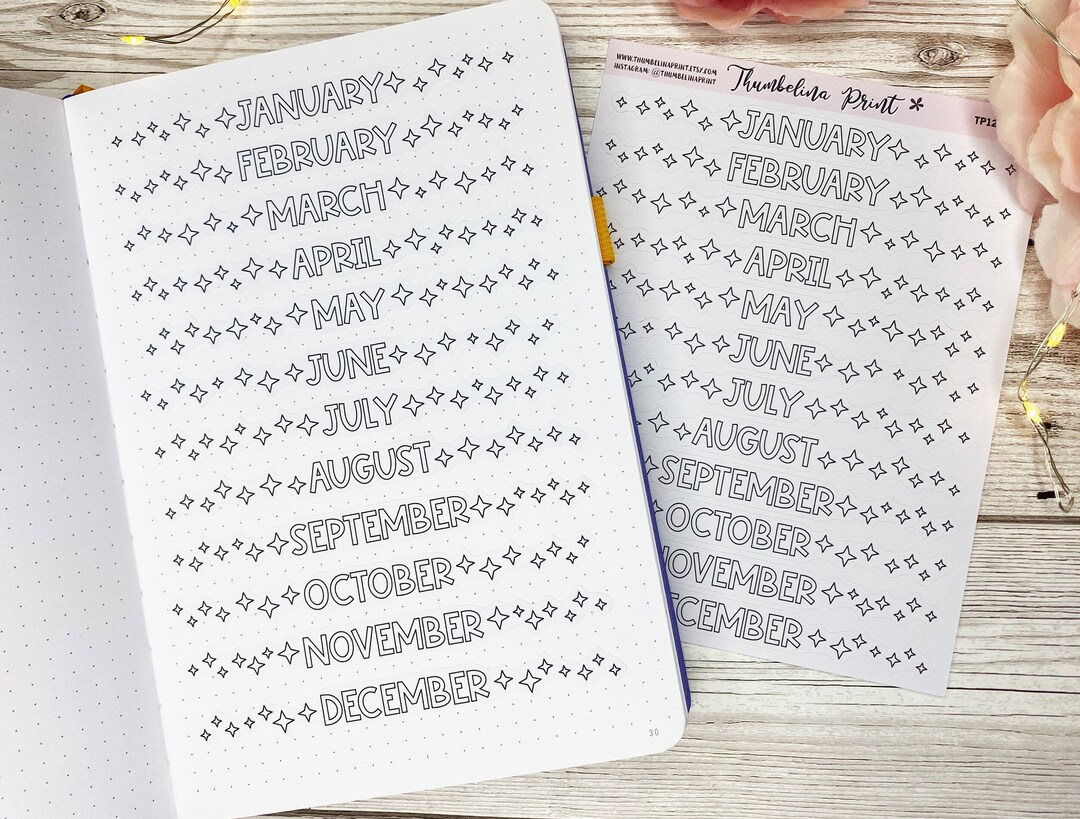 JANUARY
FEBRUARY
MARCH
APRIL
MAY
JUNE
JULY
AUGUST
SEPTEMBER
OCTOBER
NOVEMBER
DECEMBER
30
WWW.THUMBELINAPRINT.ETSY.COM
INSTAGRAM: @THUMBELINAPRINT
Thumbelina Print
TP12
JANUARY
FEBRUARY
MARCH
APRIL
MAY
JUNE
JULY
AUGUST
SEPTEMBER
OCTOBER
NOVEMBER
ECEMBER